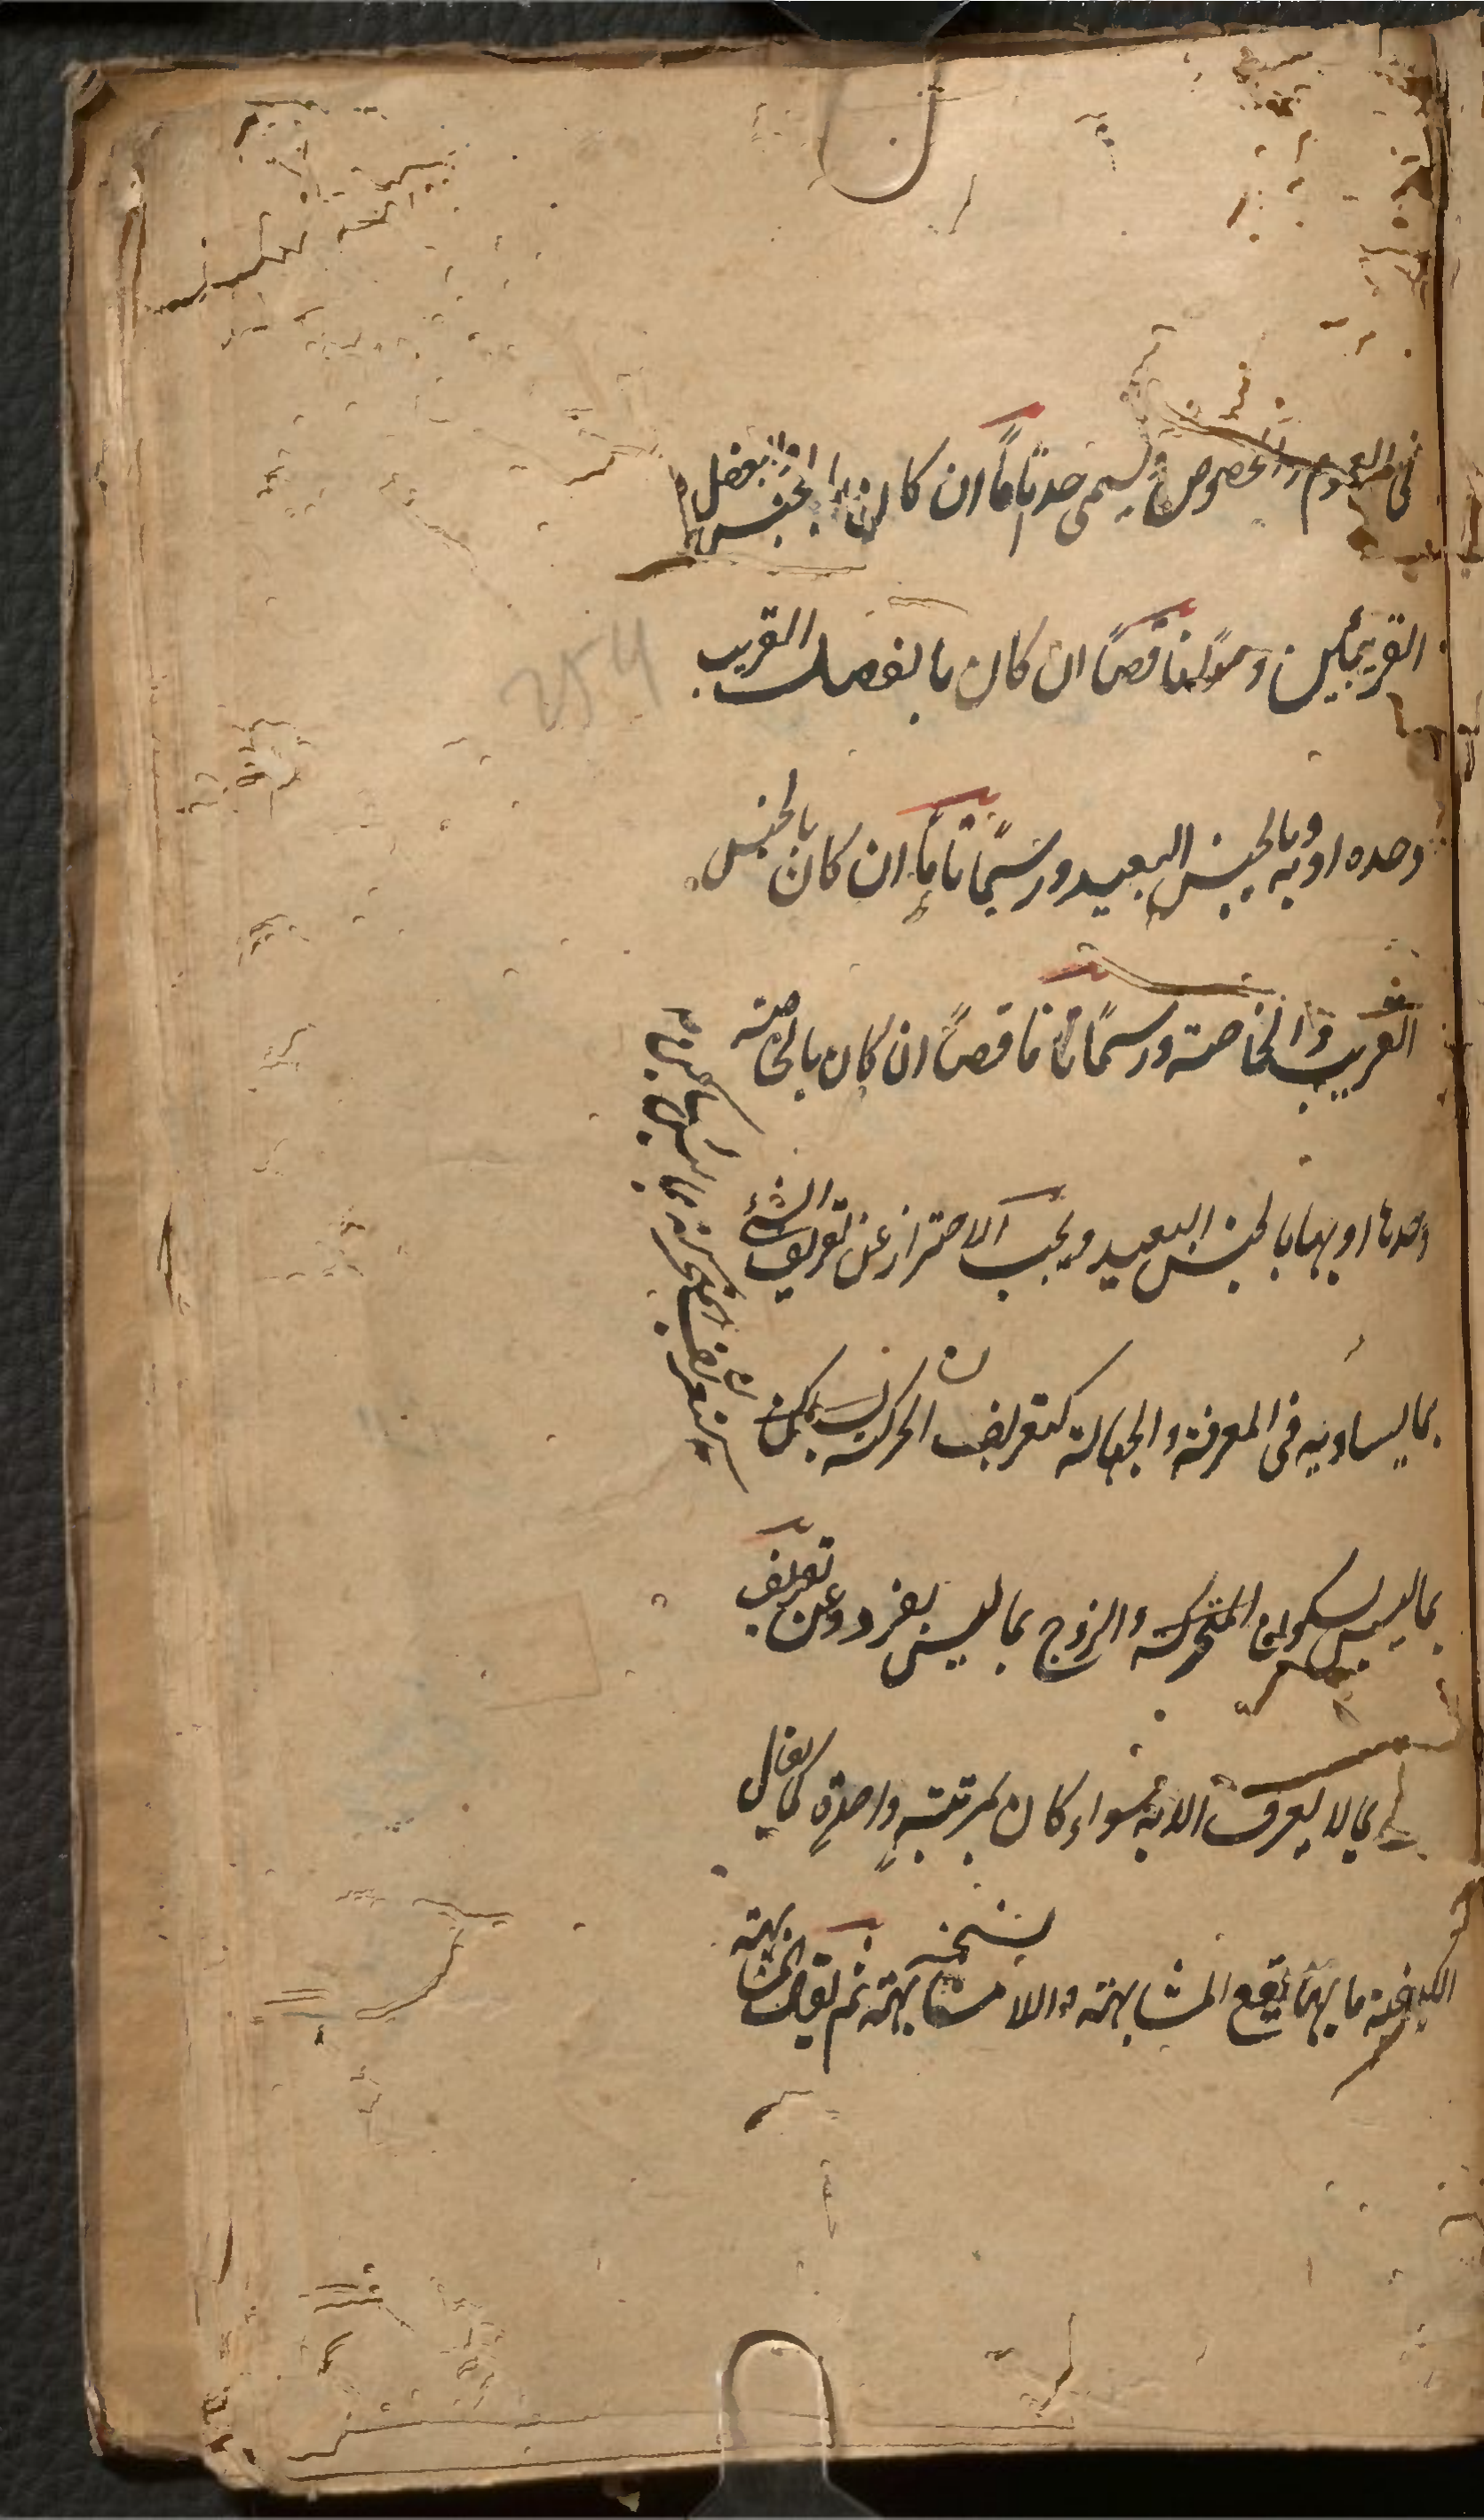 فى العموم والخصوص ويسمى حدا تاما ان كان بالجنس والفصل
القريبين وحدا ناقصا ان كان بالفصل القريب
وحده او به وبالجنس البعيد ورسما تاما ان كان بالجنس
القريب والخاصة ورسما ناقصا ان كان بالخاصة
وحدها او بها وبالجنس البعيد ويجب الاحتراز عن تعريف الشئ
بما يساويه فى المعرفة والجهالة كتعريف الحركة
بما ليس بسكون والزوج بما ليس بفرد وعن تعريف
بما لا يعرف الا به سواء كان بمرتبة واحدة كما يقال
الكيفية ما بها يقع المشابهة واللا مشابهة ثم يقال المشابهة
254